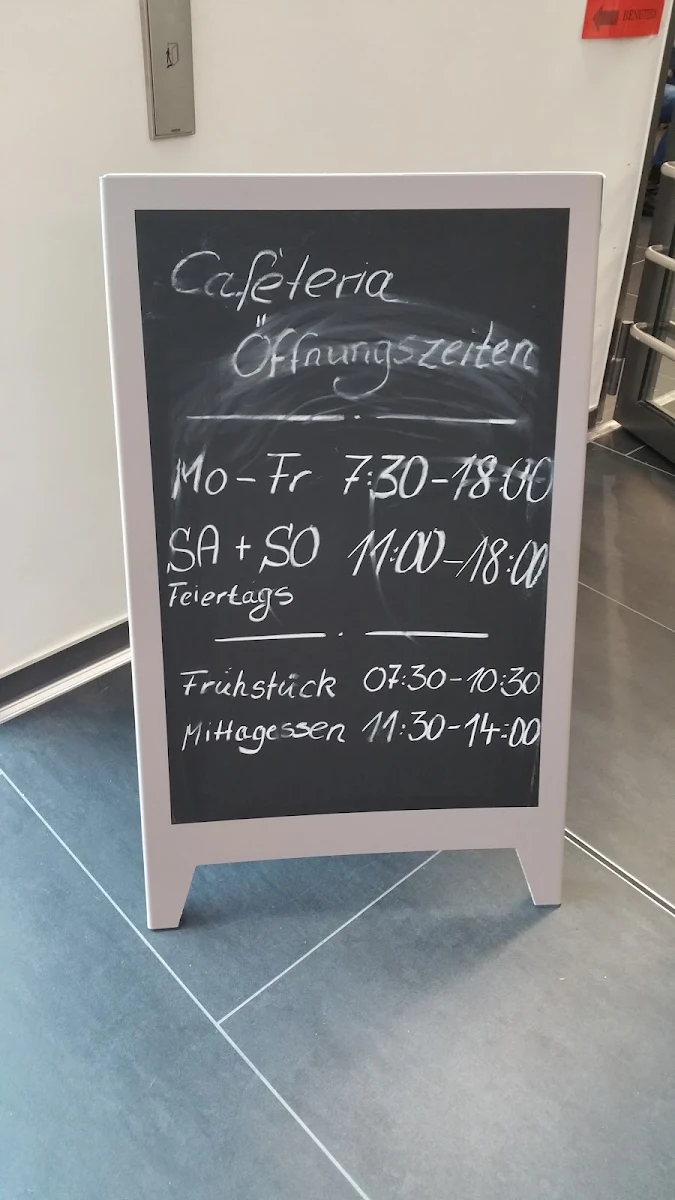 Cafèteria
Öffnungszeiten
Mo - Fr 7:30 - 18:00
SA + SO 11:00 - 18:00
Feiertags
Frühstück 07:30 - 10:30
Mittagessen 11:30 - 14:00